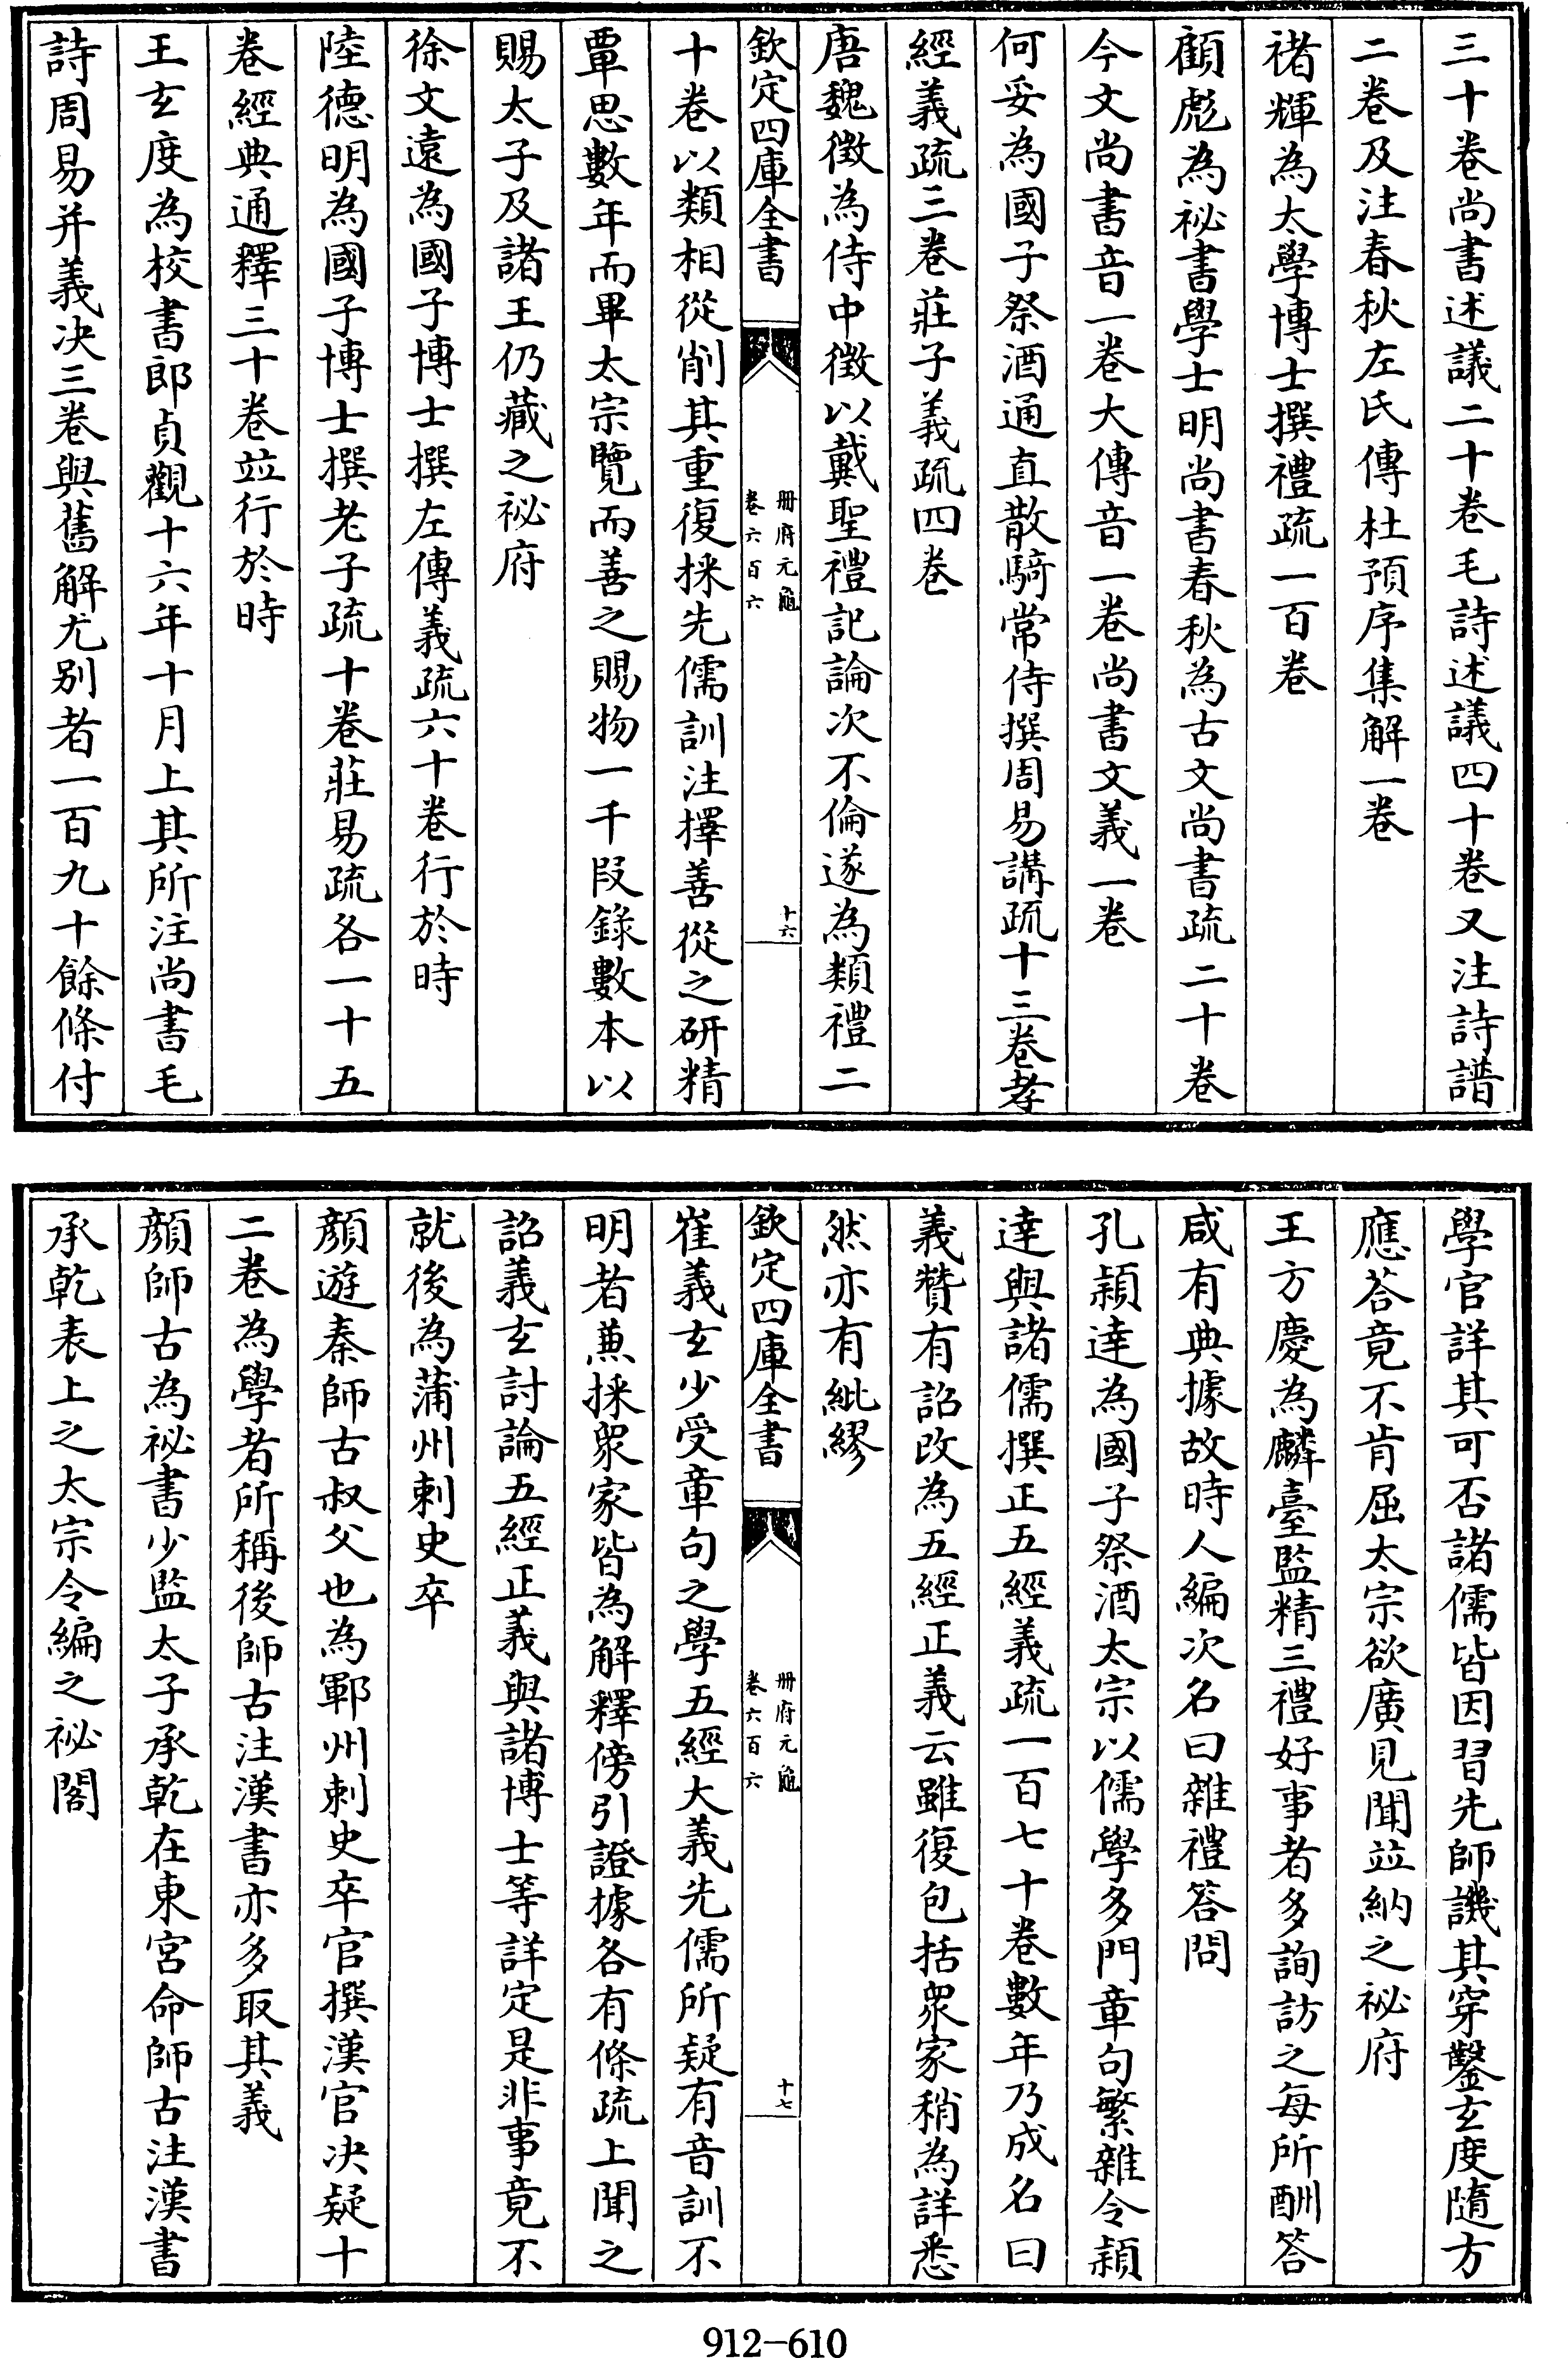 三十卷尚書述議二十卷毛詩述議四十卷又注詩譜
二卷及注春秋左氏傳杜預序集解一卷
褚輝為太學博士撰禮疏一百卷
顧彪為祕書學士明尚書春秋為古文尚書疏二十卷
今文尚書音一卷大傳音一卷尚書文義一卷
何妥為國子祭酒通直散騎常侍撰周易講疏十三卷孝
經義疏三卷莊子義疏四卷
唐魏徵為侍中徵以戴聖禮記論次不倫遂為類禮二
欽定四庫全書
冊府元龜
卷六百六
十六
十卷以類相從削其重復採先儒訓注擇善從之研精
覃思數年而畢太宗覽而善之賜物一千段錄數本以
賜太子及諸王仍藏之祕府
徐文遠為國子博士撰左傳義疏六十卷行於時
陸德明為國子博士撰老子疏十卷莊易疏各一十五
卷經典通釋三十卷竝行於時
王玄度為校書郎貞觀十六年十月上其所注尚書毛
詩周易并義决三卷與舊解尤别者一百九十餘條付
學官詳其可否諸儒皆因習先師譏其穿鑿玄度隨方
應荅竟不肯屈太宗欲廣見聞竝納之祕府
王方慶為麟臺監精三禮好事者多詢訪之每所酬答
咸有典據故時人編次名曰雜禮答問
孔穎達為國子祭酒太宗以儒學多門章句繁雜令穎
達與諸儒撰正五經義疏一百七十卷數年乃成名曰
義贊有詔改為五經正義云雖復包括衆家稍為詳悉
然亦有紕繆
欽定四庫全書
冊府元龜
卷六百六
十七
崔義玄少受章句之學五經大義先儒所疑有音訓不
明者兼採衆家皆為解釋傍引證據各有條疏上聞之
詔義玄討論五經正義與諸博士等詳定是非事竟不
就後為蒲州刺史卒
顔遊秦師古叔父也為鄆州刺史卒官撰漢官决疑十
二卷為學者所稱後師古注漢書亦多取其義
顔師古為祕書少監太子承乾在東宮命師古注漢書
承乾表上之太宗令編之祕閣
912-610